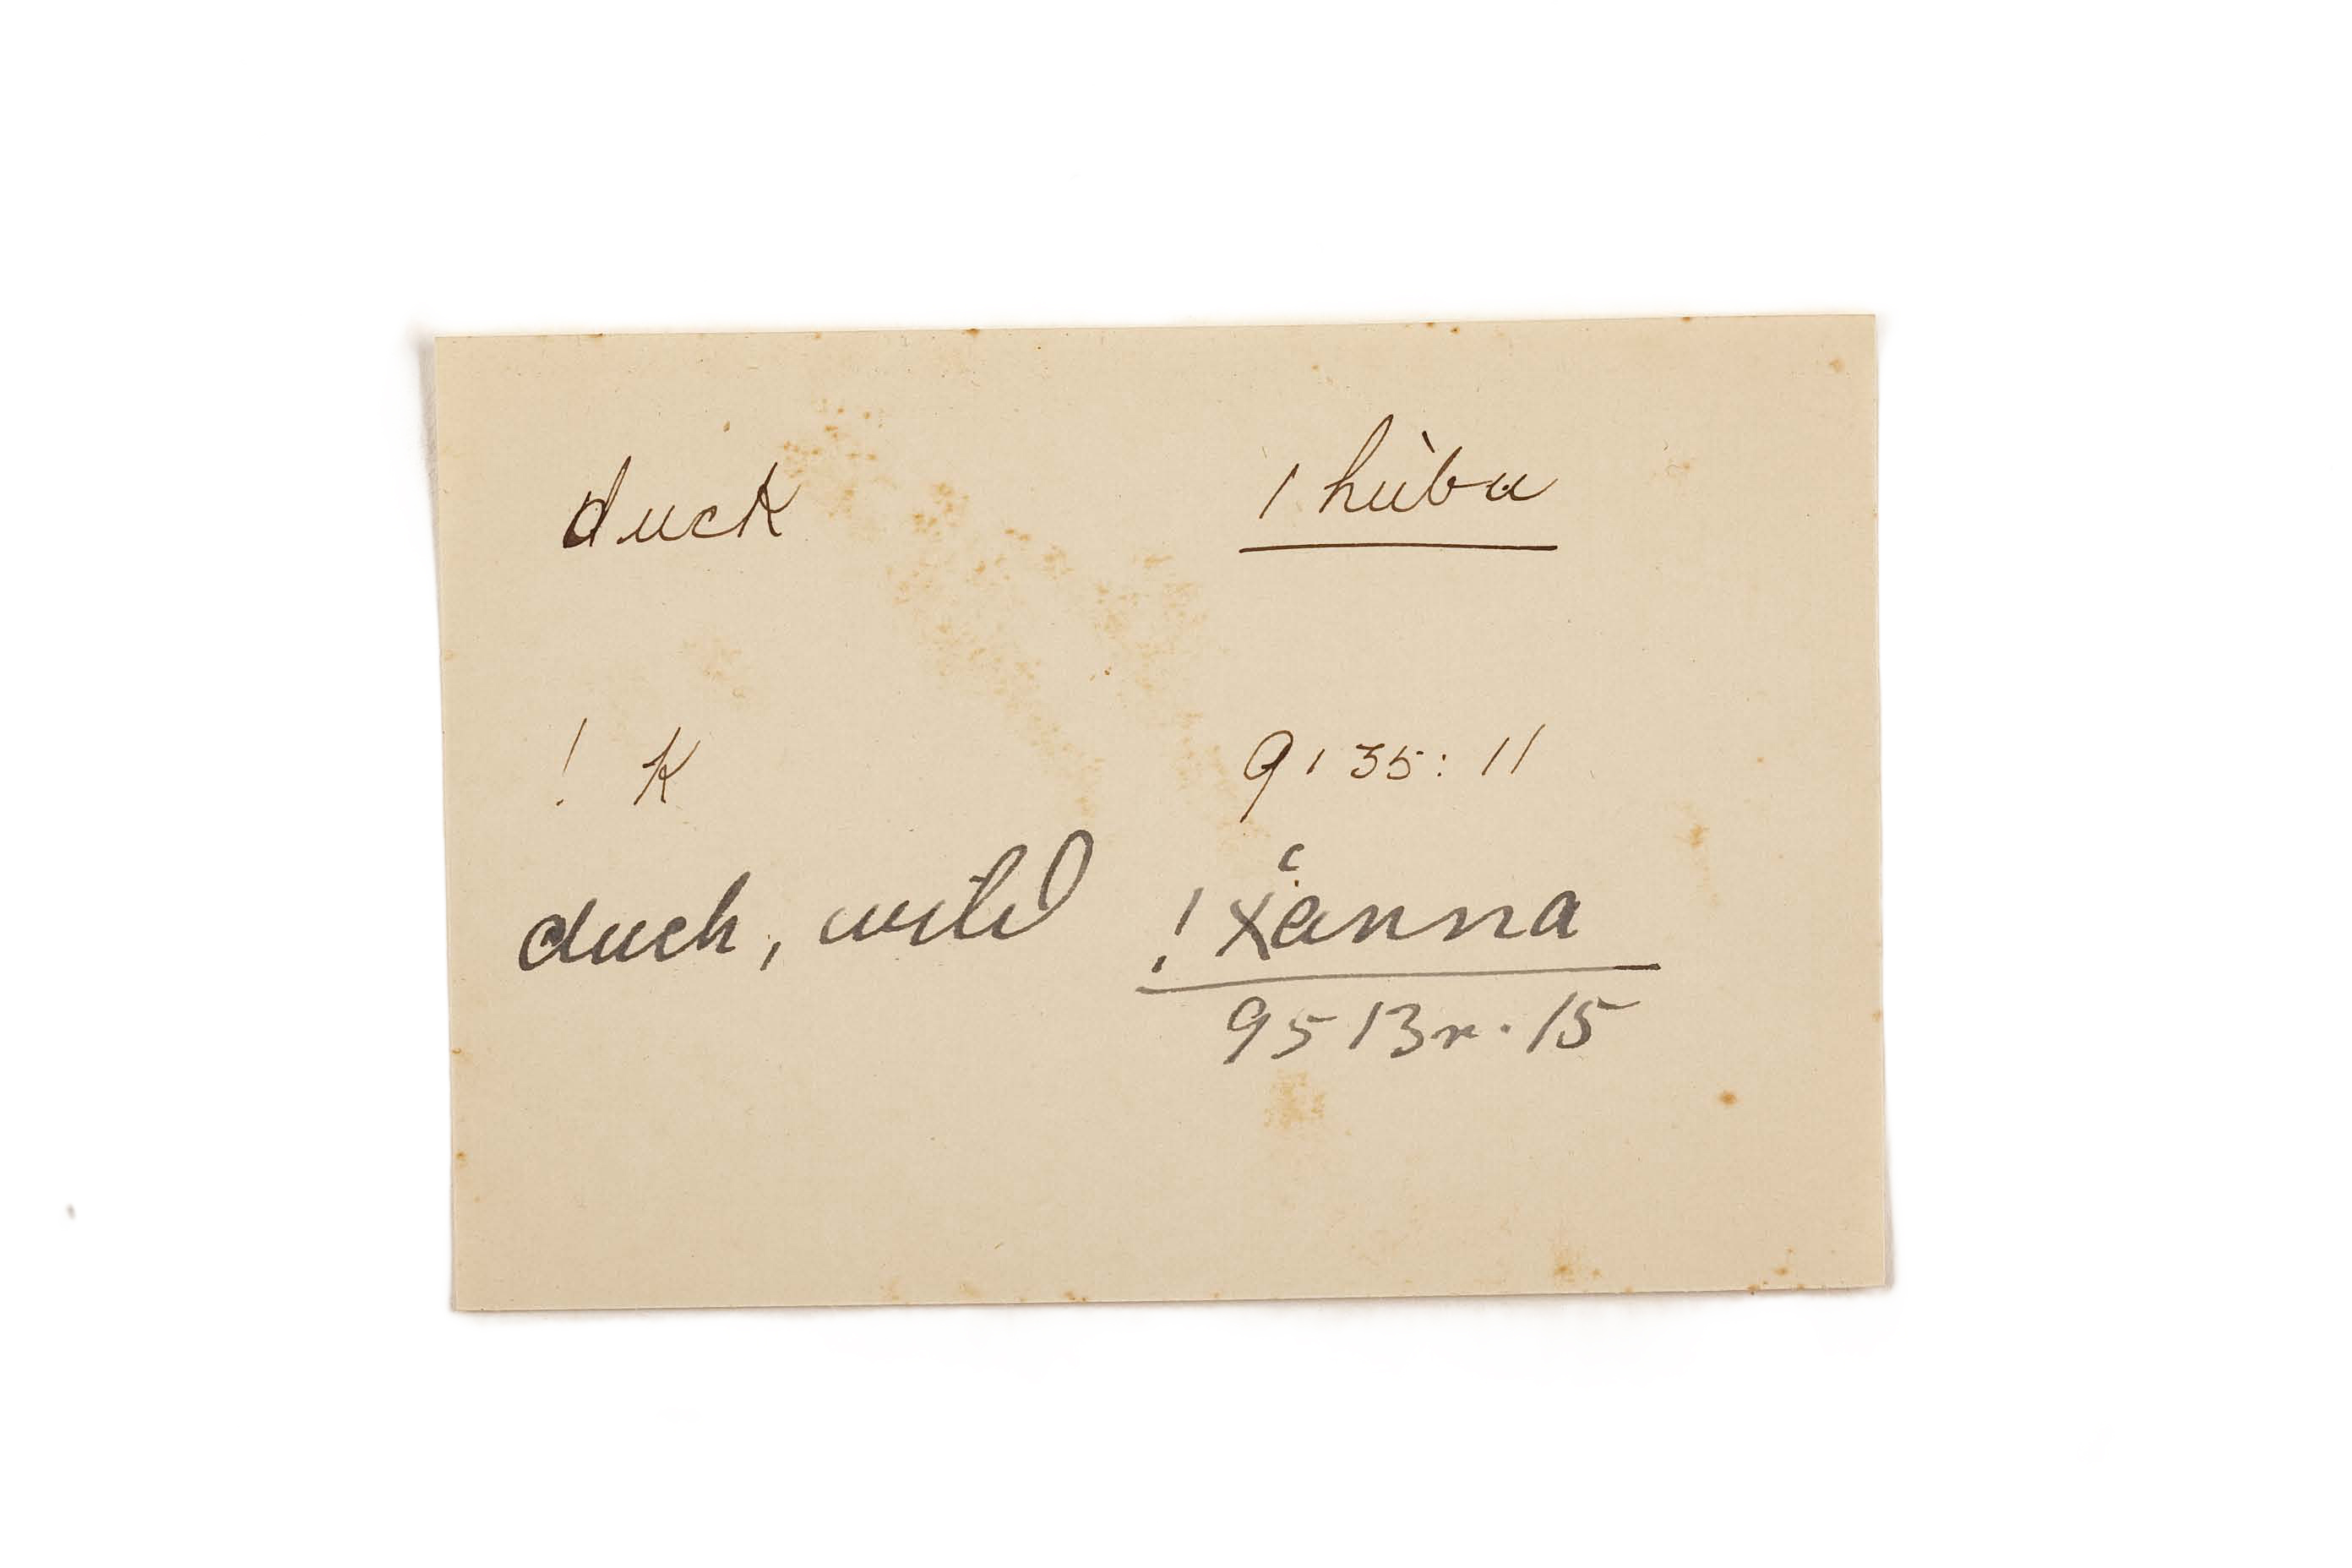 duck ǀ hùbu
! K 9135: 11
duck, wild ! xänna
9513r. 15